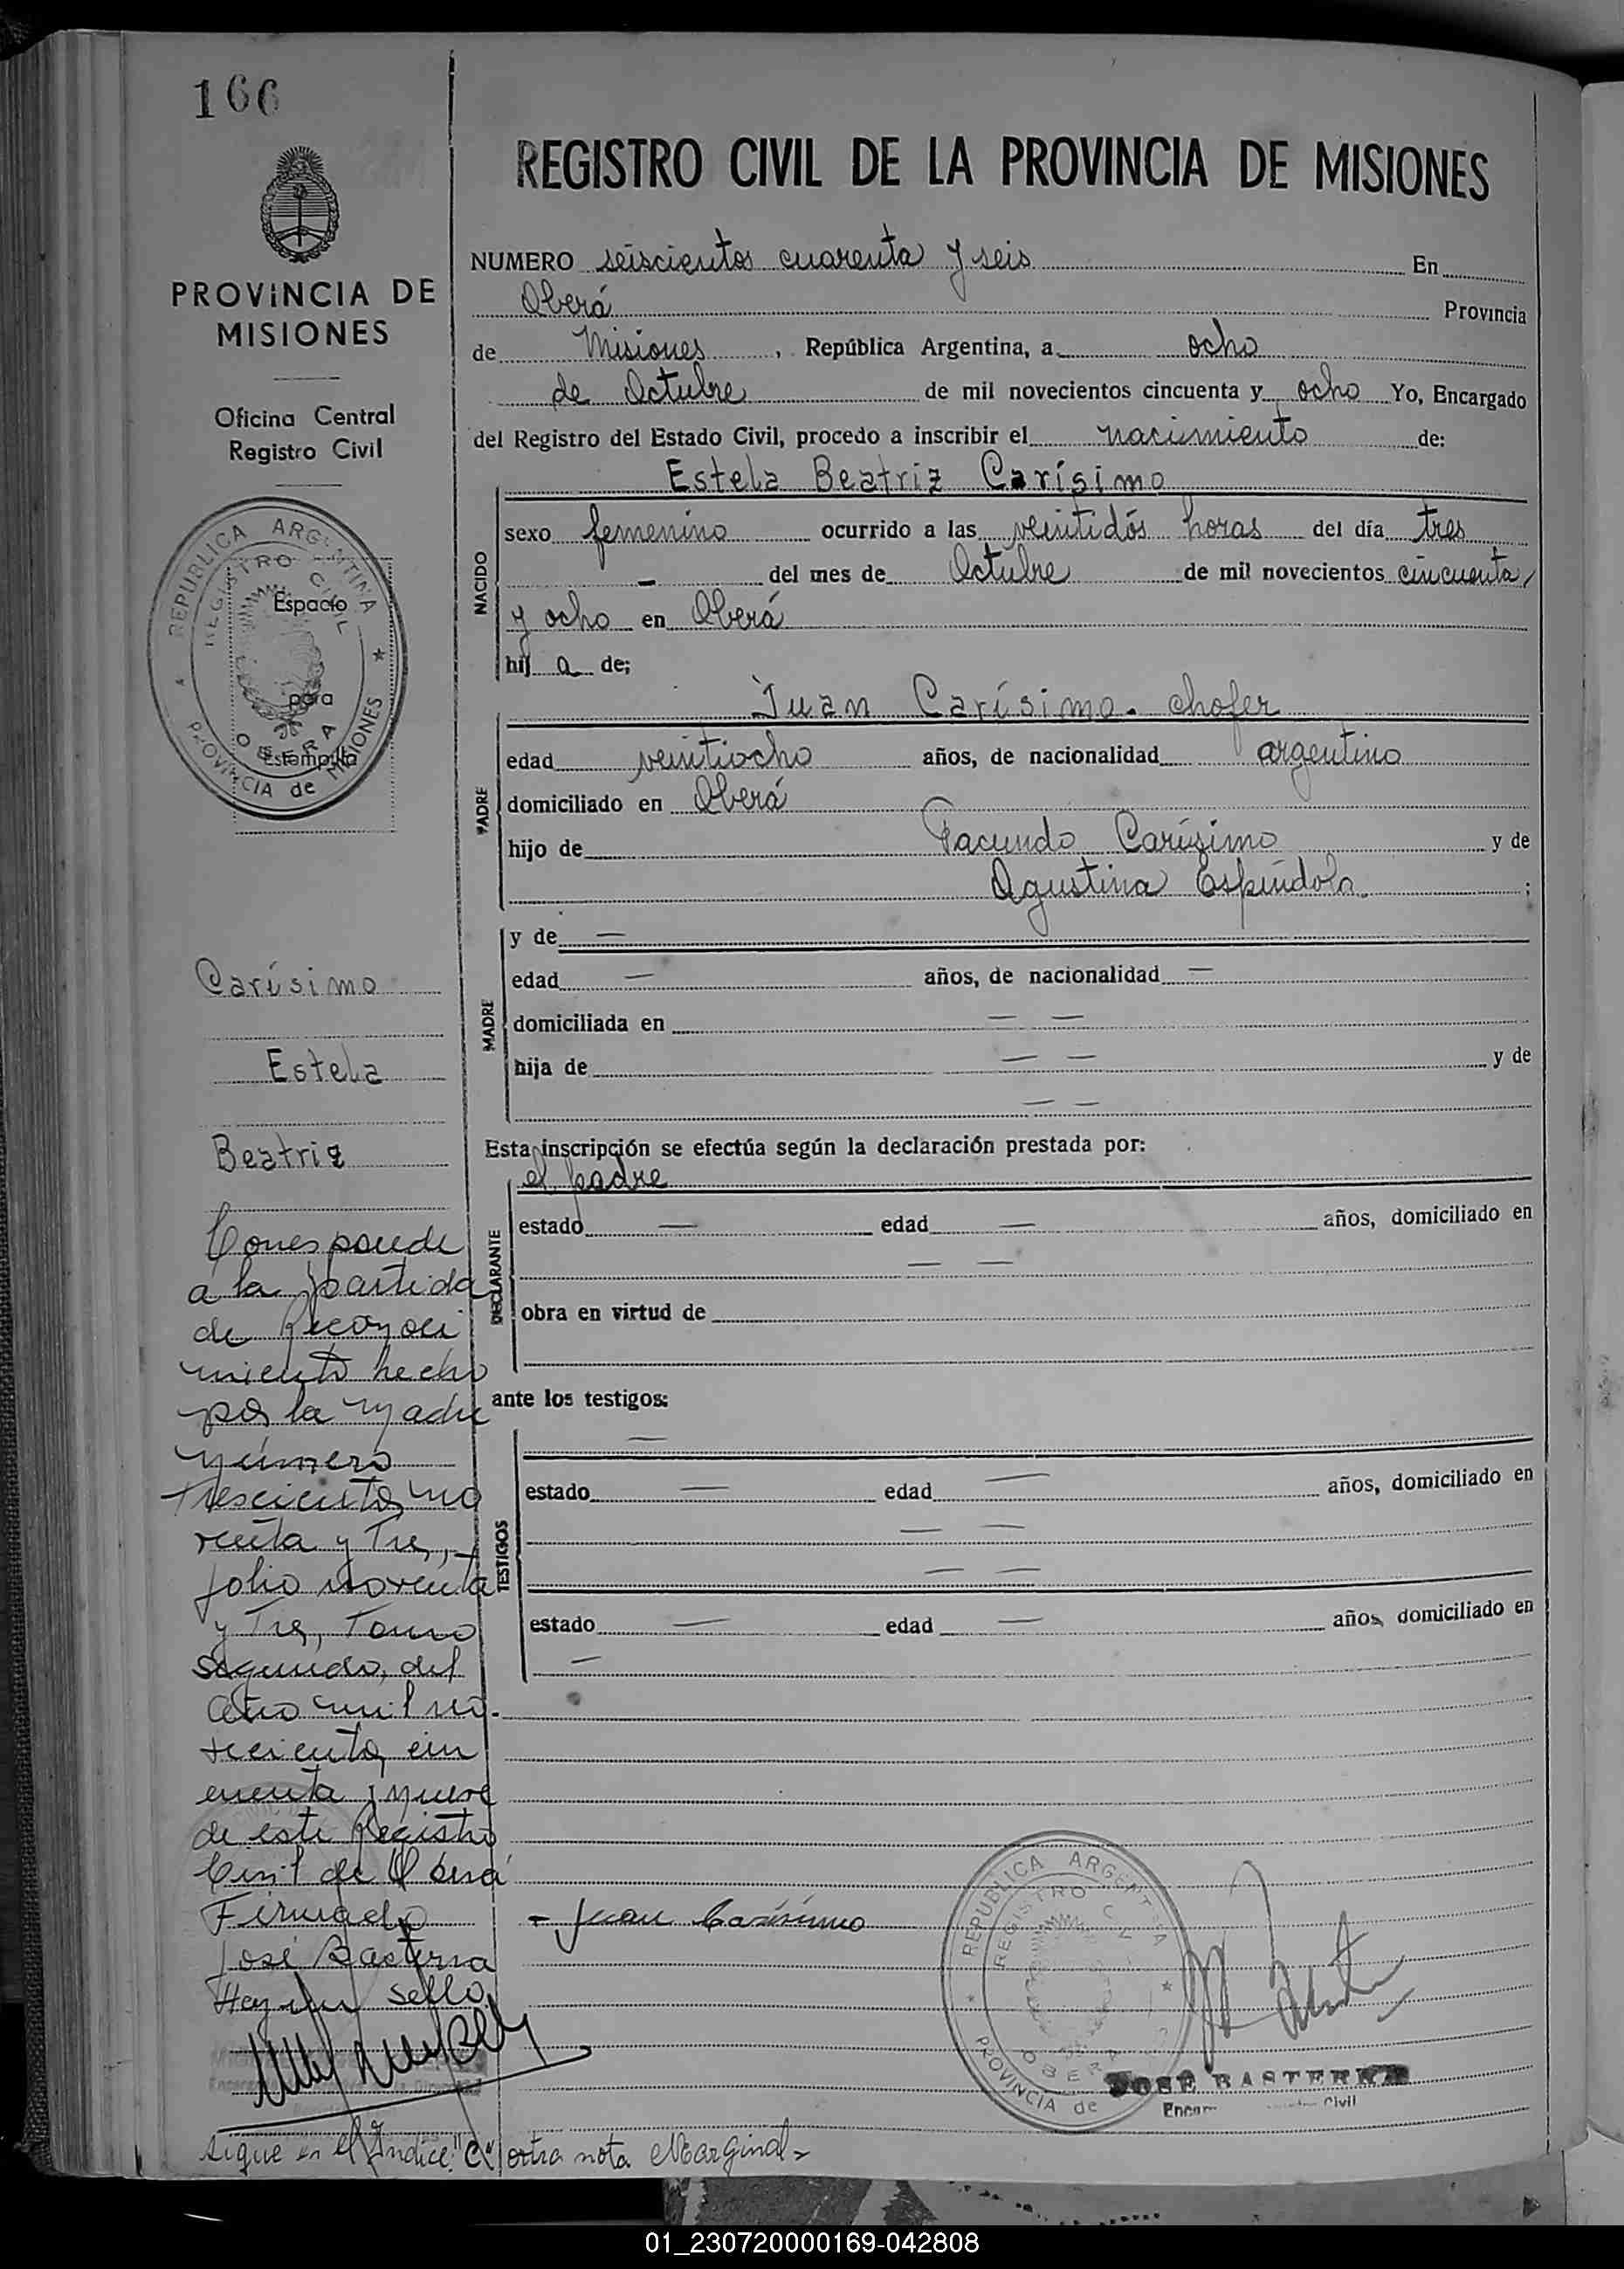 166
REGISTRO CIVIL DE LA PROVINCIA DE MISIONES
PROVINCIA DE
MISIONES
Oficina Central
Registro Civil
REPUBLICA ARGENTINA
REGISTRO CIVIL
OBERA
PROVINCIA de MISIONES
Espacio
para
Estampilla
NUMERO seiscientos cuarenta y seis En
Oberá Provincia
de Misiones, República Argentina, a ocho
de Octubre de mil novecientos cincuenta y ocho Yo, Encargado
del Registro del Estado Civil, procedo a inscribir el nacimiento de:
Estela Beatriz Carísimo
NACIDO
sexo femenino ocurrido a las veintidós horas del día tres
— del mes de Octubre de mil novecientos cincuenta
y ocho en Oberá
hij a de;
PADRE
Juan Carísimo. chofer
edad veintiocho años, de nacionalidad argentino
domiciliado en Oberá
hijo de Facundo Carísimo y de
Agustina Espíndola ;
MADRE
y de —
edad — años, de nacionalidad —
domiciliada en — —
hija de — — y de
— —
Esta inscripción se efectúa según la declaración prestada por:
DECLARANTE
el padre
estado — edad — años, domiciliado en
— —
obra en virtud de
ante los testigos:
TESTIGOS
—
estado — edad — años, domiciliado en
— —
— —
estado — edad — años, domiciliado en
—
Carísimo
Estela
Beatriz
Corresponde
a la partida
de Reconoci
miento hecho
por la madre
número
trescientos no
venta y Tres,
folio noventa
y Tres, Tomo
Segundo, del
año mil no-
vecientos cin
cuenta y nueve
de este Registro
Civil de Oberá
Firmado
José Basterra
Hay un sello
- Juan Carísimo
REPUBLICA ARGENTINA
REGISTRO CIVIL
OBERA
PROVINCIA de
JOSE BASTERRA
Civil
sigue en el Indice "C" otra nota Marginal-
01_230720000169-042808